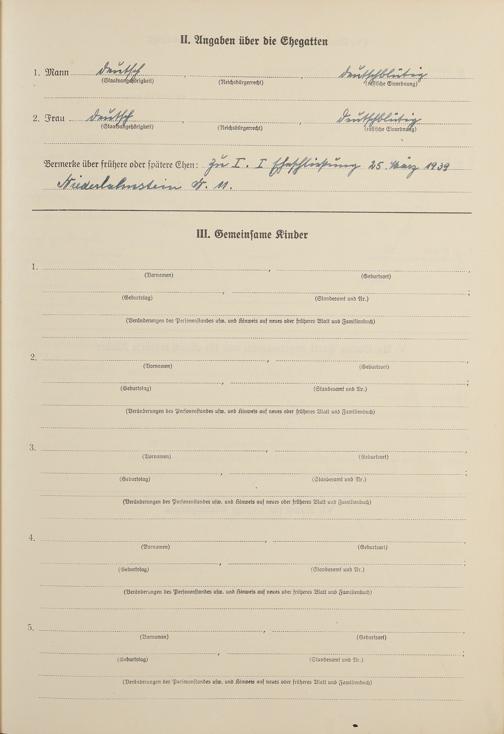 II. Angaben über die Ehegatten
1. Mann deutsch, deutschblütig
(Staatsangehörigkeit) (Reichsbürgerrecht) (rassische Einordnung)
2. Frau deutsch, deutschblütig
(Staatsangehörigkeit) (Reichsbürgerrecht) (rassische Einordnung)
Vermerke über frühere oder spätere Ehen: Zu I. I Eheschließung 25. März 1939
Niederlahnstein N. 11.
III. Gemeinsame Kinder
1.
(Vornamen) (Geburtsort)
(Geburtstag) (Standesamt und Nr.)
(Veränderungen des Personenstandes usw. und Hinweis auf neues oder früheres Blatt und Familienbuch)
2.
(Vornamen) (Geburtsort)
(Geburtstag) (Standesamt und Nr.)
(Veränderungen des Personenstandes usw. und Hinweis auf neues oder früheres Blatt und Familienbuch)
3.
(Vornamen) (Geburtsort)
(Geburtstag) (Standesamt und Nr.)
(Veränderungen des Personenstandes usw. und Hinweis auf neues oder früheres Blatt und Familienbuch)
4.
(Vornamen) (Geburtsort)
(Geburtstag) (Standesamt und Nr.)
(Veränderungen des Personenstandes usw. und Hinweis auf neues oder früheres Blatt und Familienbuch)
5.
(Vornamen) (Geburtsort)
(Geburtstag) (Standesamt und Nr.)
(Veränderungen des Personenstandes usw. und Hinweis auf neues oder früheres Blatt und Familienbuch)